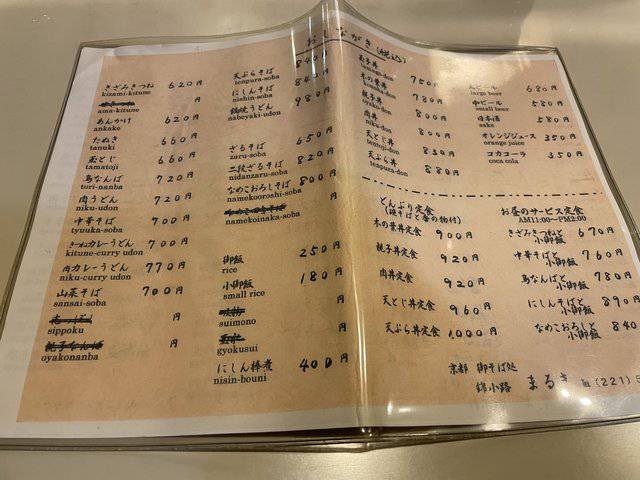 おしながき(税込)
きざみきつね 620円
kizami-kitune
ama-kitune
あんかけ 620円
ankake
たぬき 660円
tanuki
玉とじ 660円
tamatoji
鳥なんば 720円
tori-nanba
肉うどん 720円
niku-udon
中華そば 700円
tyuuka-soba
きつねカレーうどん 700円
kitune-curry udon
肉カレーうどん 770円
niku-curry udon
山菜そば 700円
sansai-soba
円
sippoku
円
oyakonanba
天ぷらそば 840円
tenpura-soba
にしんそば 840円
nishin-soba
鍋焼うどん 980円
nabeyaki-udon
ざるそば 650円
zaru-soba
二段ざるそば 820円
nidanzaru-soba
なめこおろしそば 800円
namekooroshi-soba
円
namekoinaka-soba
御飯 250円
rice
小御飯 180円
small rice
円
suimono
円
gyokusui
にしん棒煮 400円
nisin-bouni
玉子丼 750円
木の葉丼 780円
親子丼 800円
肉丼 800円
niku-don
天とじ丼 830円
tentoji-don
天ぷら丼 880円
tenpura-don
680円
large beer
中ビール 580円
small beer
日本酒 580円
sake
オレンジジュース 350円
orange juice
コカコーラ 350円
coca cola
どんぶり定食
木の葉丼定食 900円
親子丼定食 920円
肉丼定食 920円
天とじ丼定食 960円
天ぷら丼定食 1,000円
お昼のサービス定食
AM11:00〜PM2:00
きざみきつねと小御飯 670円
中華そばと小御飯 760円
鳥なんばと小御飯 780円
にしんそばと小御飯 890円
なめこおろしと小御飯 840円
京都 御そば処
錦小路 まるき ☎(221)5